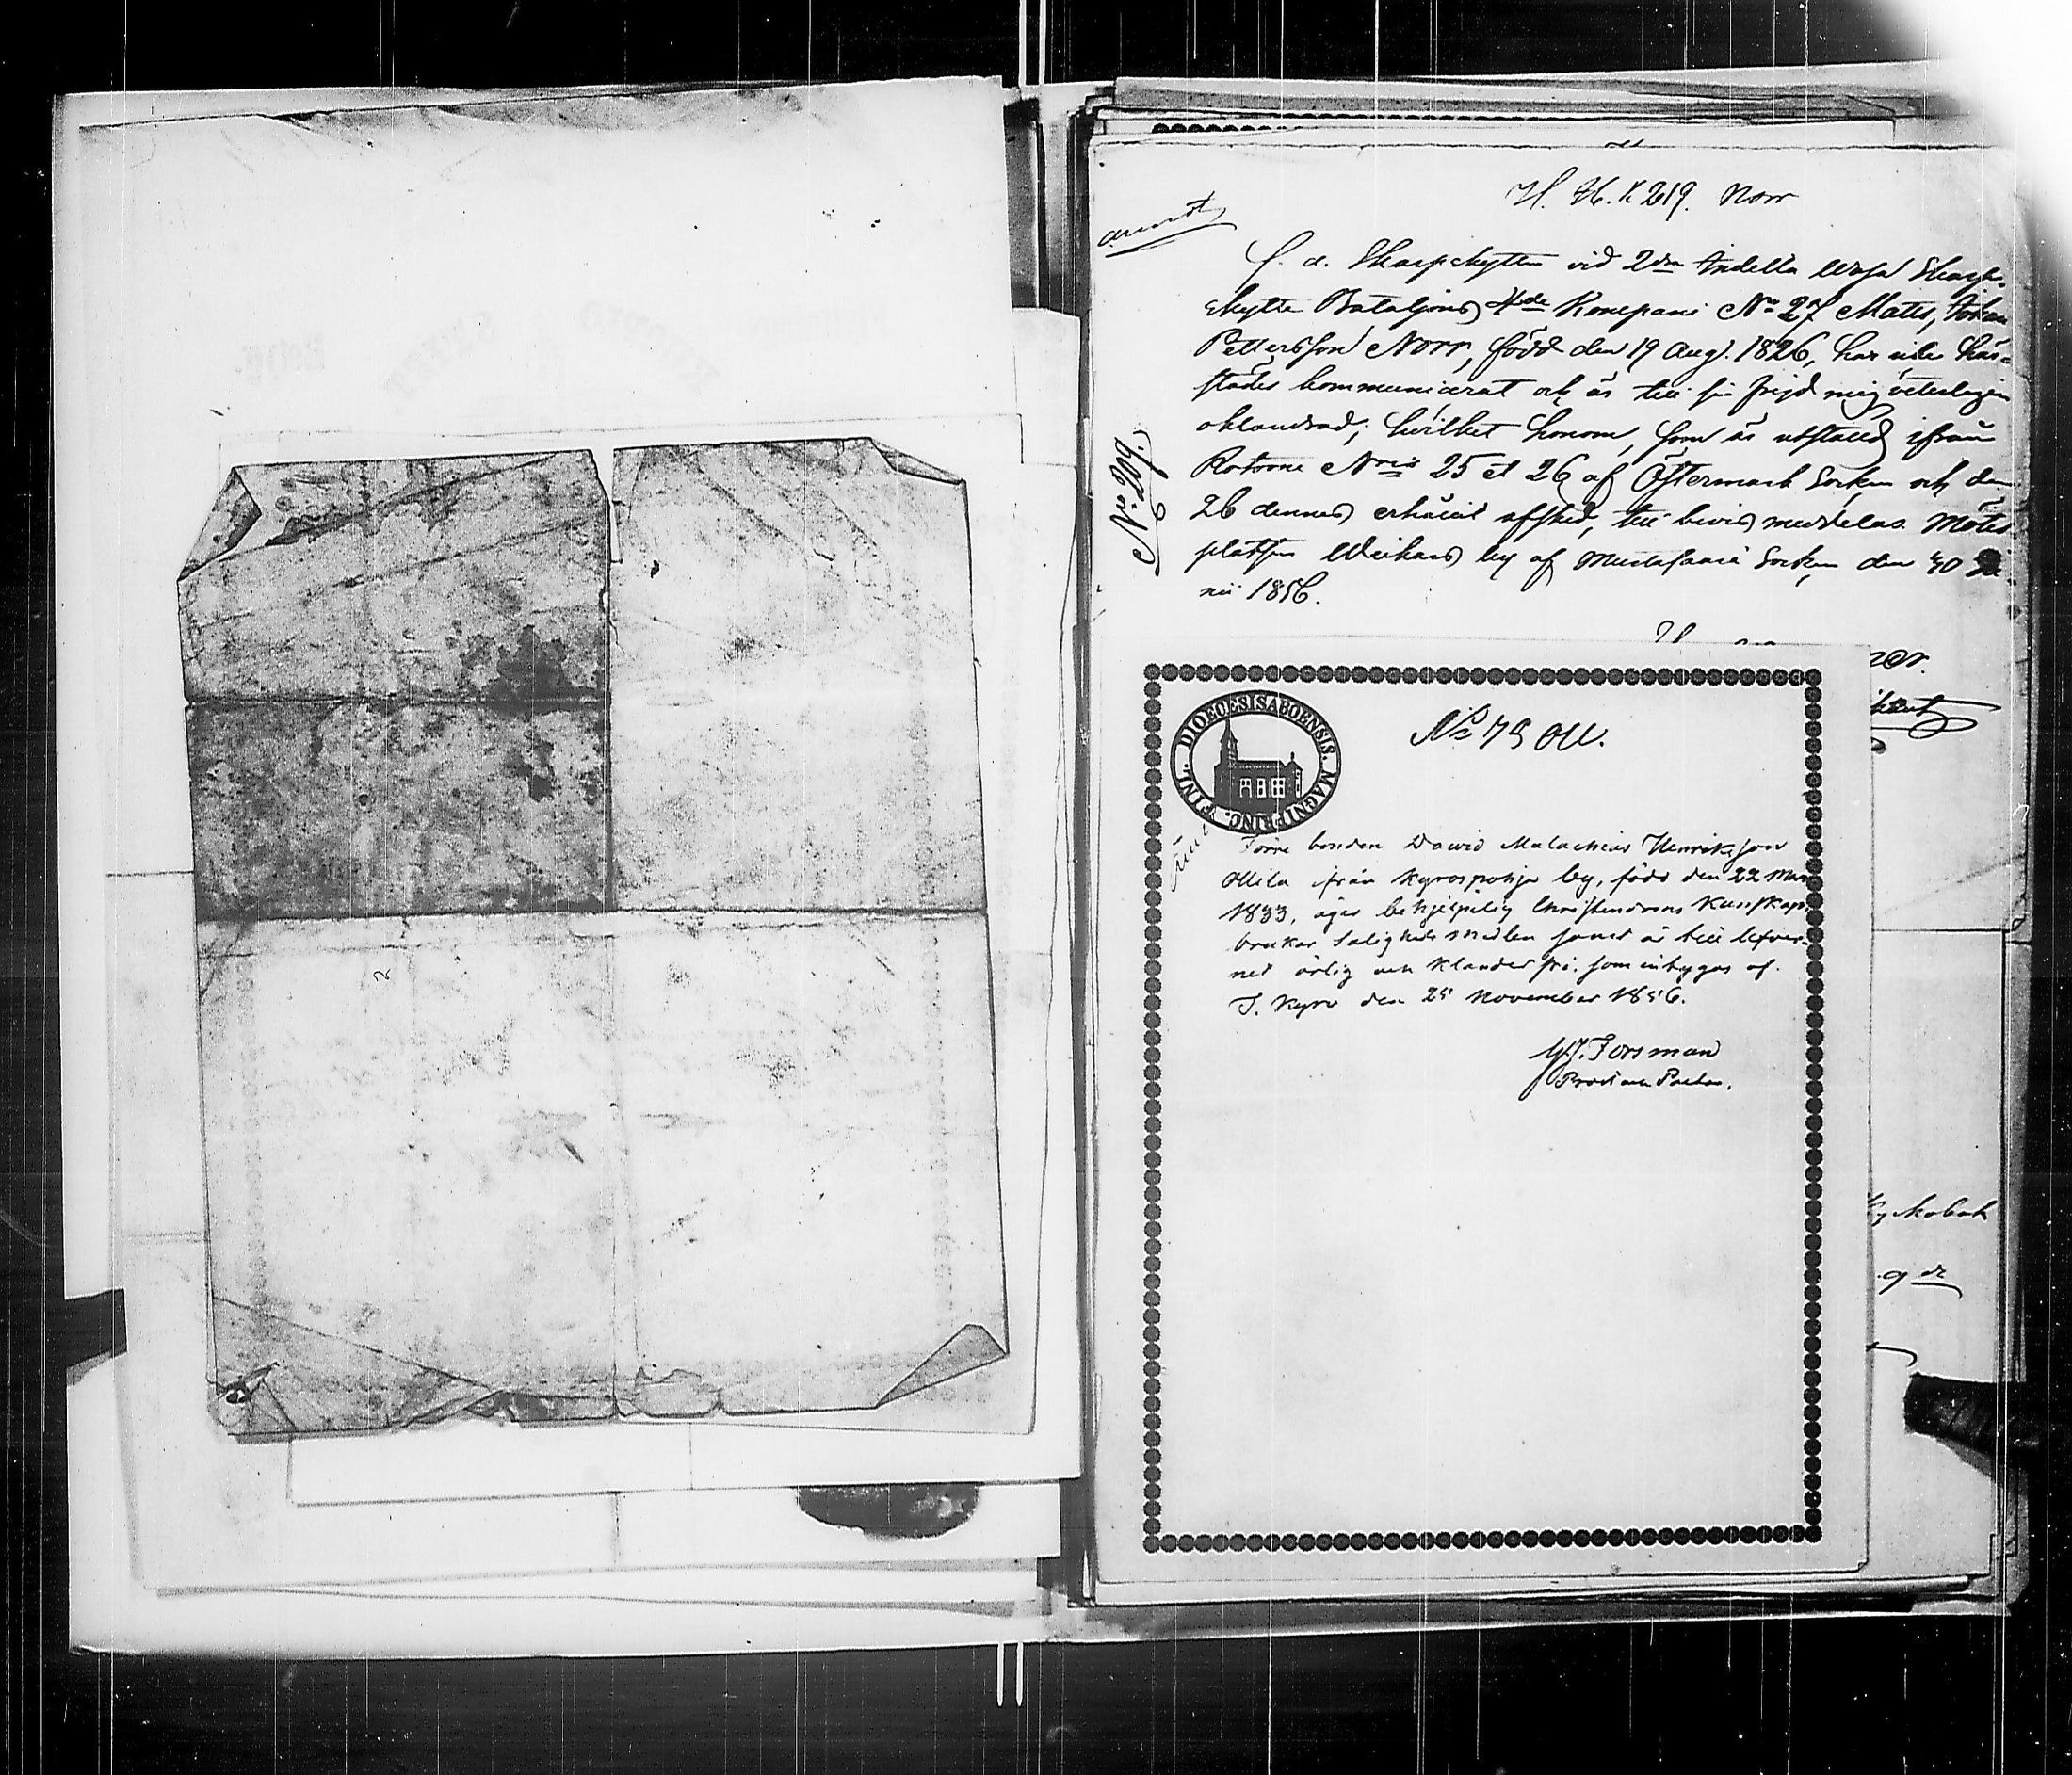 H. H. K 219. Norr
F. d. Skarpskytten vid 2dra Indelta Wasa Skarp-
skytte Bataljons 4de Kompani No 27 Matts Johan
Pettersson Norr, född den 19 Aug. 1826, har
städes kommunicerat och är till sin frejd mig veterligen
oklandrad; hvilket honom, som är utstäld ifrån
Rotorne Nris 25 et 26 af Östermark Socken och den
26 dennes erhållit afsked, till bevis meddelas. Mötes-
platsen by af Mustasaari Socken den 30 Ju-
nii 1856.
No 209.
DIOECESIS ABOENSIS. MAGNI PRINC. FINL.
No 79 Oll.
Förre bonden David Malachias Henriksson
Ollila ifrån Kyrospohja by, född den 22 Mars
1833, äger behjelplig Christendoms Kunskap,
brukar Salighets medlen samt är till lefver-
net ärlig och klanderfri, som intygas af.
S. Kyro den 25 November 1856.
Forsman
Prost och Pastor.